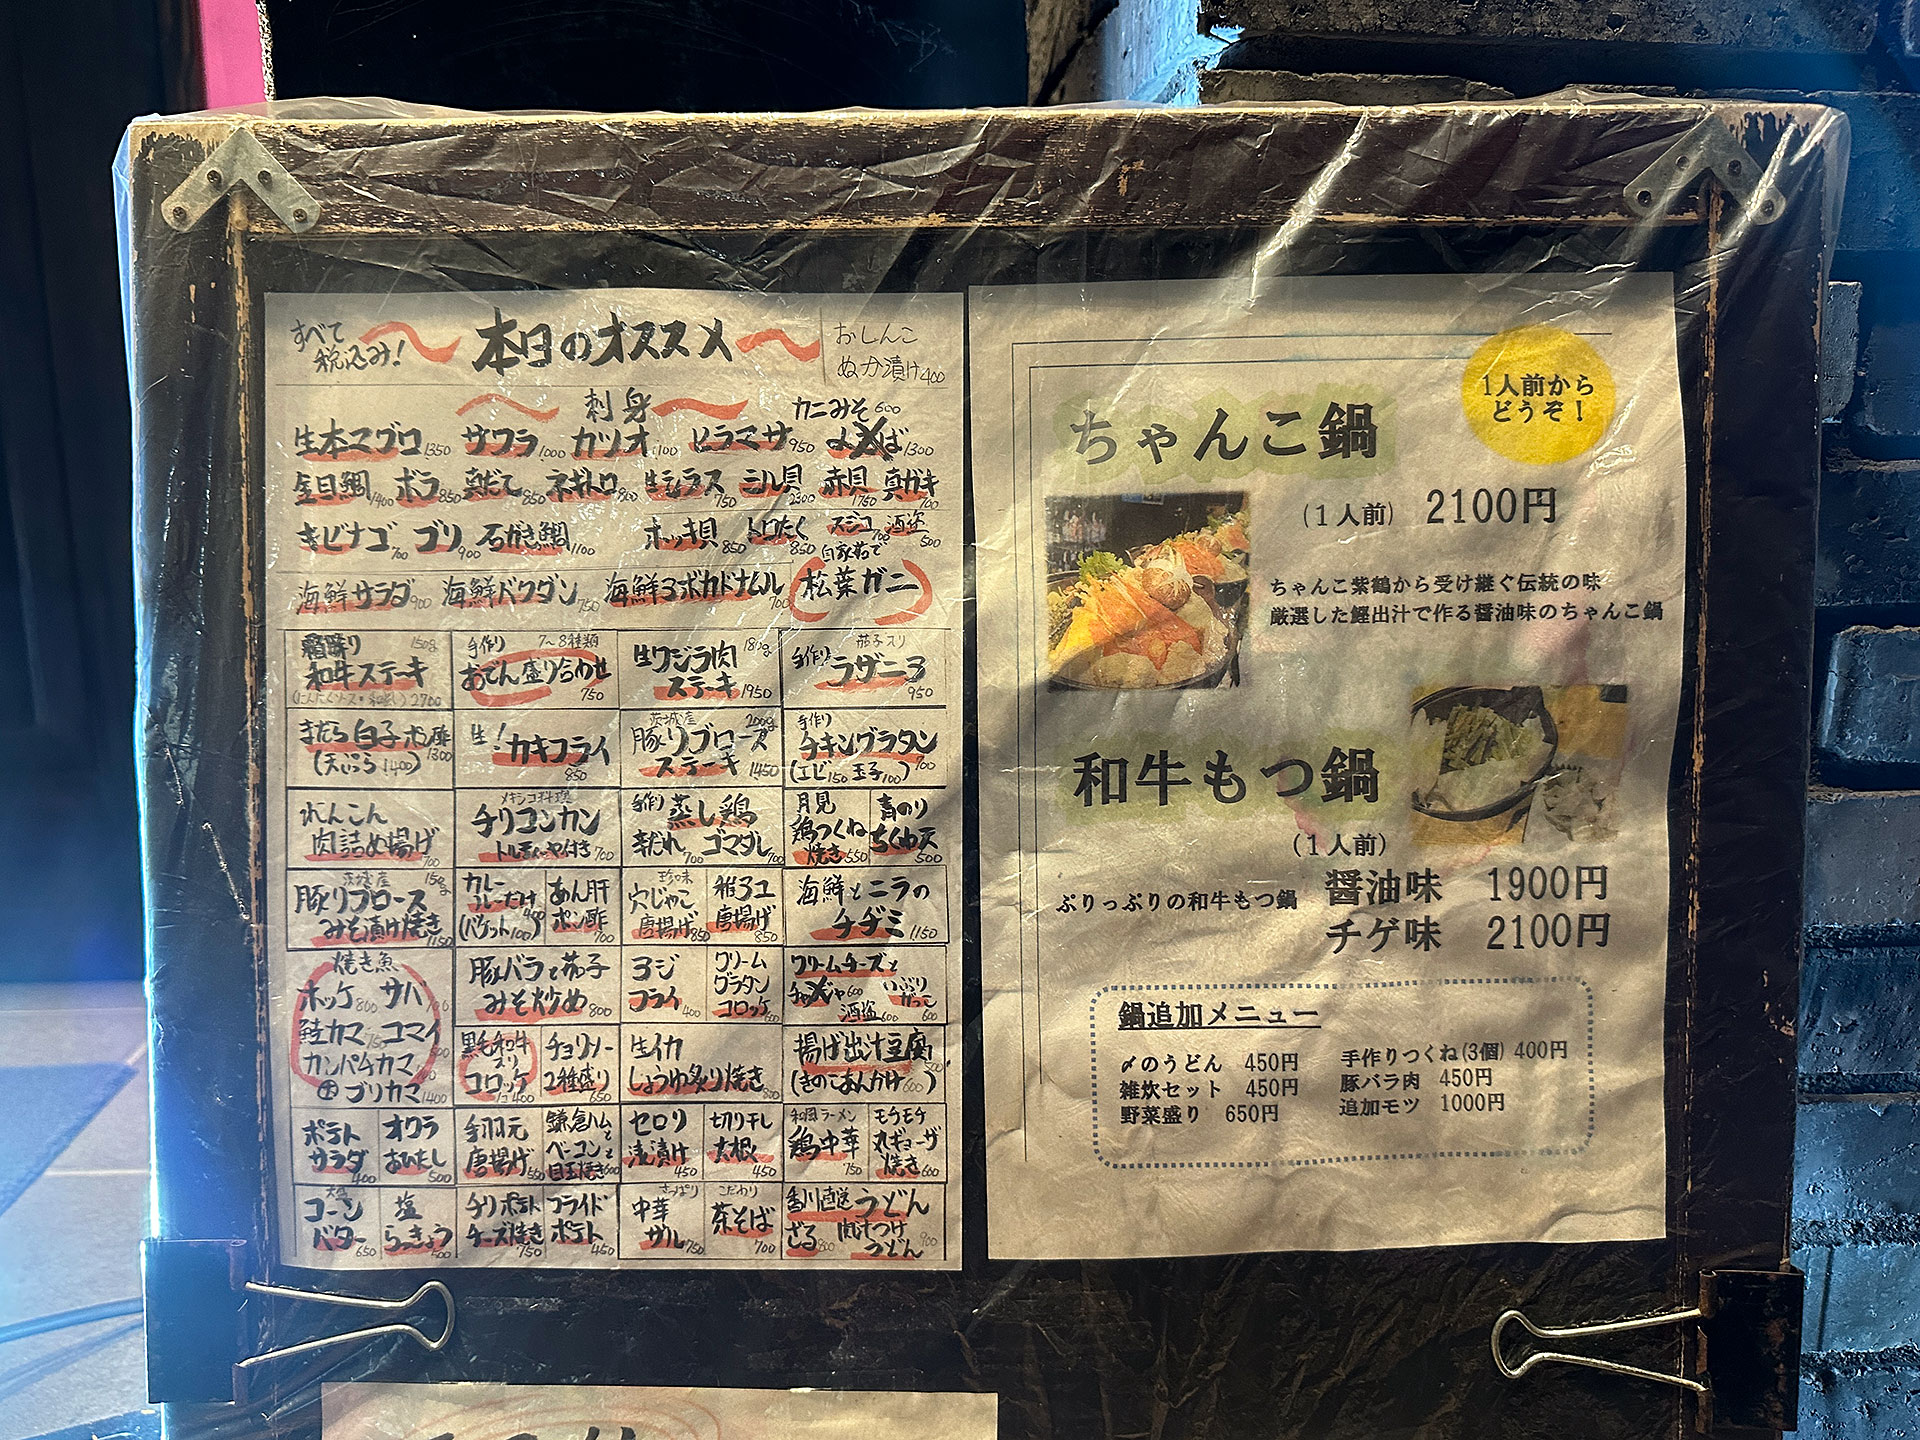 すべて
税込み！
本日のオススメ
おしんこ
ぬか漬け 400
刺身
カニみそ 600
生本マグロ 1350 サワラ 1000 カツオ 1100 ヒラマサ 950 1300
金目鯛 1400 ボラ 850 真だこ 850 ネギトロ 800 生シラス 750 ミル貝 2300 赤貝 1750 真ガキ 700
キビナゴ 700 ブリ 900 石がき鯛 1100 ホッキ貝 850 トロたく 850 スジコ 700 酒盗 500
自家茹で
海鮮サラダ 900 海鮮バクダン 750 海鮮アボカドナムル 700 松葉ガニ
霜降り 150g
和牛ステーキ
2700
手作り 7〜8種類
おでん盛り合わせ
750
生ワジラ肉 180g
ステーキ 1950
手作り 茄子入り
ラザニア
950
まだら白子ポン酢 1300
(天ぷら 1400)
生！カキフライ
850
茨城産 200g
豚リブロース
ステーキ 1450
手作り
チキングラタン 700
(エビ150 玉子100)
れんこん
肉詰め揚げ 700
メキシコ料理
チリコンカン
トルティーヤ付き 700
手作り 蒸し鶏
辛だれ 700 ゴマダレ 700
月見
鶏つくね
焼き 550
青のり
ちくわ天
500
茨城産 150g
豚リブロース
みそ漬け焼き 1150
カレー
ルーだけ 400
(バケット100)
あん肝
ポン酢
700
珍味
穴じゃこ
唐揚げ 850
稚アユ
唐揚げ
850
海鮮とニラの
チヂミ 1150
焼き魚
ホッケ 800 サバ
鮭カマ 750 コマイ
カンパチカマ
ブリカマ 1400
豚バラと茄子
みそ炒め 800
アジ
フライ 400
クリーム
グラタン
コロッケ 600
クリームチーズと
600
酒盗 600
いぶり
がっこ
600
黒毛和牛
入り
コロッケ
1コ 400
チョリソー
2種盛り
650
生イカ
しょうゆ炙り焼き 800
揚げ出汁豆腐 500
(きのこあんかけ 600)
ポテト
サラダ
400
オクラ
おひたし
500
手羽元
唐揚げ 550
鎌倉ハムと
ベーコンと
目玉焼き 600
セロリ
浅漬け
450
切り干し
大根
450
和風ラーメン
鶏中華
750
モチモチ
丸ギョーザ
焼き 600
コーン
バター 650
塩
らっきょう
500
チリポテト
チーズ焼き
750
フライド
ポテト
450
さっぱり
中華
ザル 750
こだわり
茶そば
700
香川直送 うどん
ざる 800 肉汁つけ 900
うどん
1人前から
どうぞ！
ちゃんこ鍋
(1人前) 2100円
ちゃんこ紫鶴から受け継ぐ伝統の味
厳選した鰹出汁で作る醤油味のちゃんこ鍋
和牛もつ鍋
(1人前)
ぷりっぷりの和牛もつ鍋
醤油味 1900円
チゲ味 2100円
鍋追加メニュー
〆のうどん 450円
雑炊セット 450円
野菜盛り 650円
手作りつくね(3個) 400円
豚バラ肉 450円
追加モツ 1000円